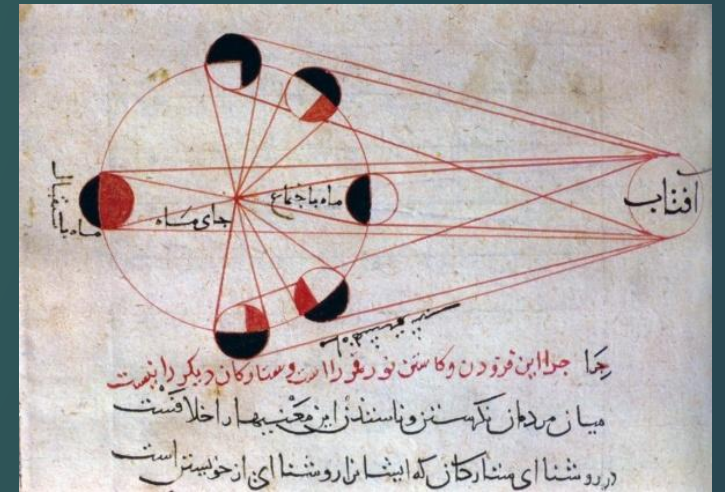 افتاب
ماه باجتماع
جای ماه
ماه باستقبال
چرا این فزودن و کاستن نور قمر را است و ستارکان دیکر را نیست
میان مردمان نکرستن و این معنیها را خلافست
در روشنا ای ستارکان که ایشانرا روشنا ای از خویشتن است